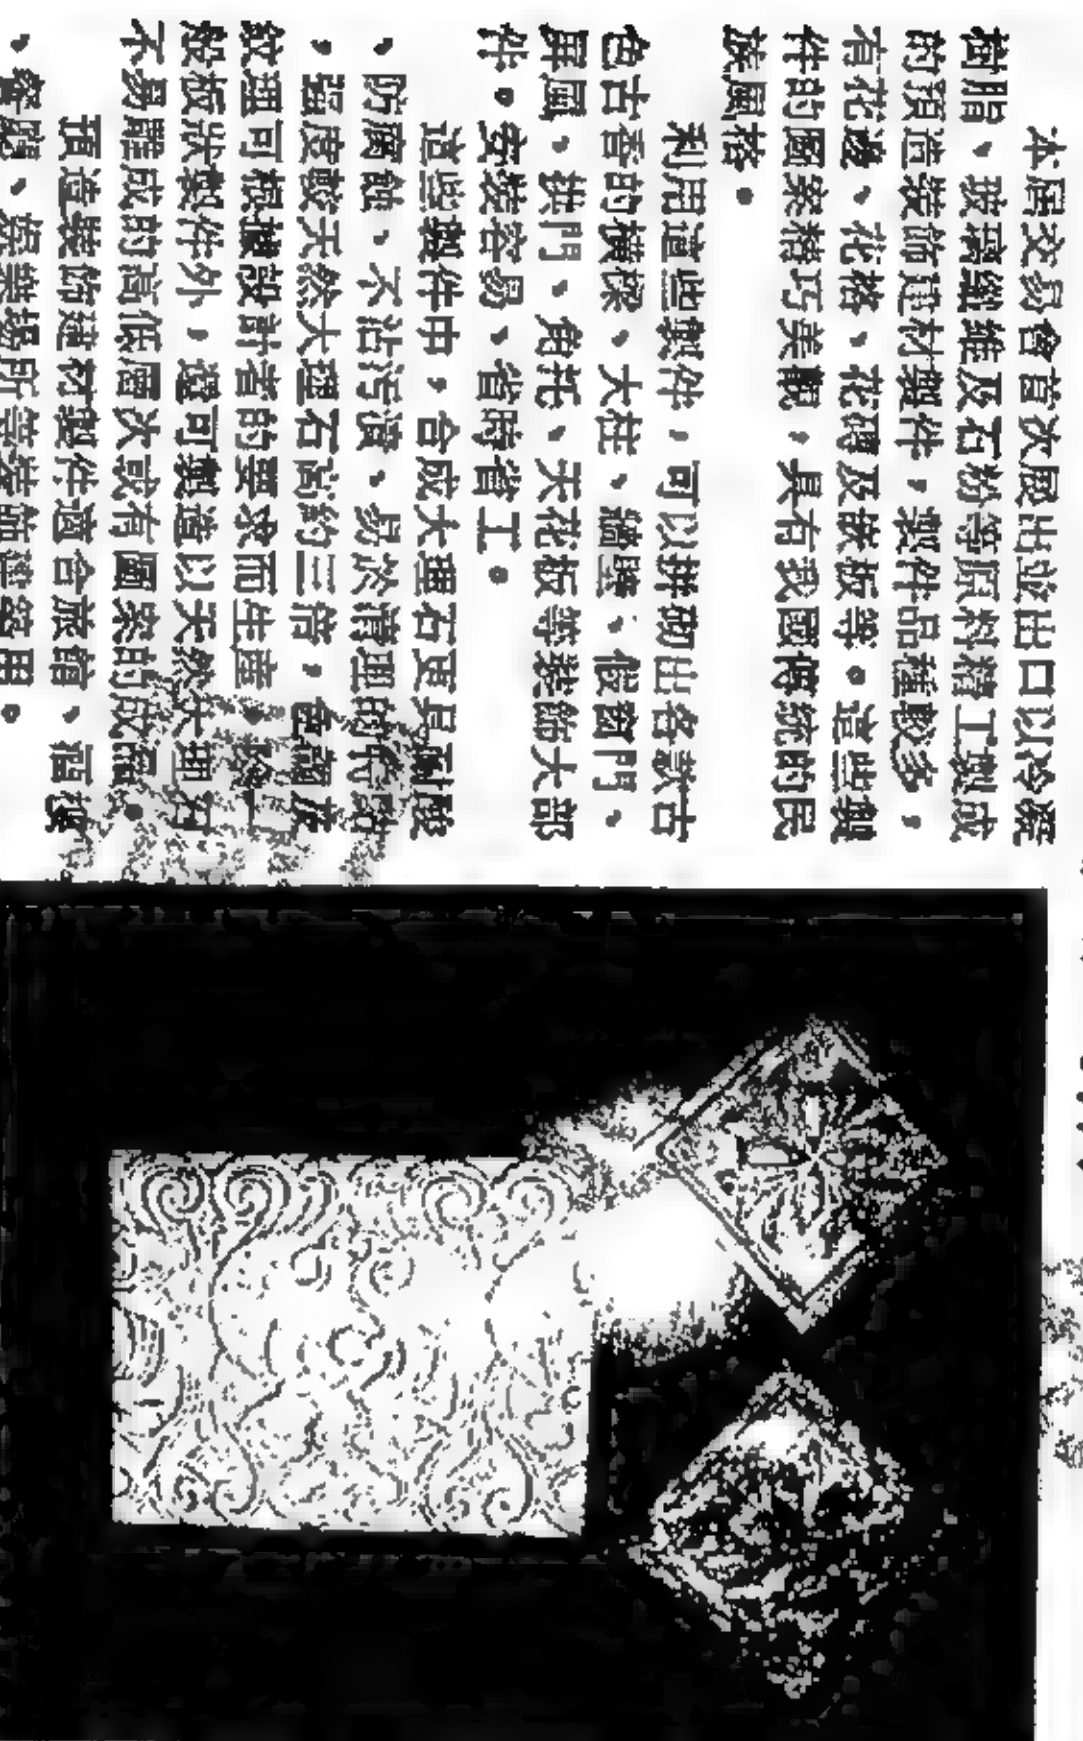 本屆交易會首次展出並出口以冷凝
樹脂、玻璃纖維及石粉等原料精工製成
的預造裝飾建材製件，製件品種較多，
有花邊、花格、花磚及族板等。這些製
件的圖案精巧美觀，具有我國傳統的民
族風格。
利用這些製件，可以拼砌出各款古
色古香的橫樑、大柱、牆壁、假窗門、
屏風、拱門、角托、天花板等裝飾大部
件。安裝容易、省時省工。
這些製件中，合成大理石更具耐酸
、防腐蝕、不沾污漬、易於清理的
，强度較天然大理石高約三倍，色
紋理可根據設計者的要求而生產。除
般板狀製件外，還可製造以天然大理石
不易雕成的高低層次或有圖案的成品。
預造裝飾建材製件適合旅館、酒樓
、餐廳、娛樂場所等裝飾建築用。